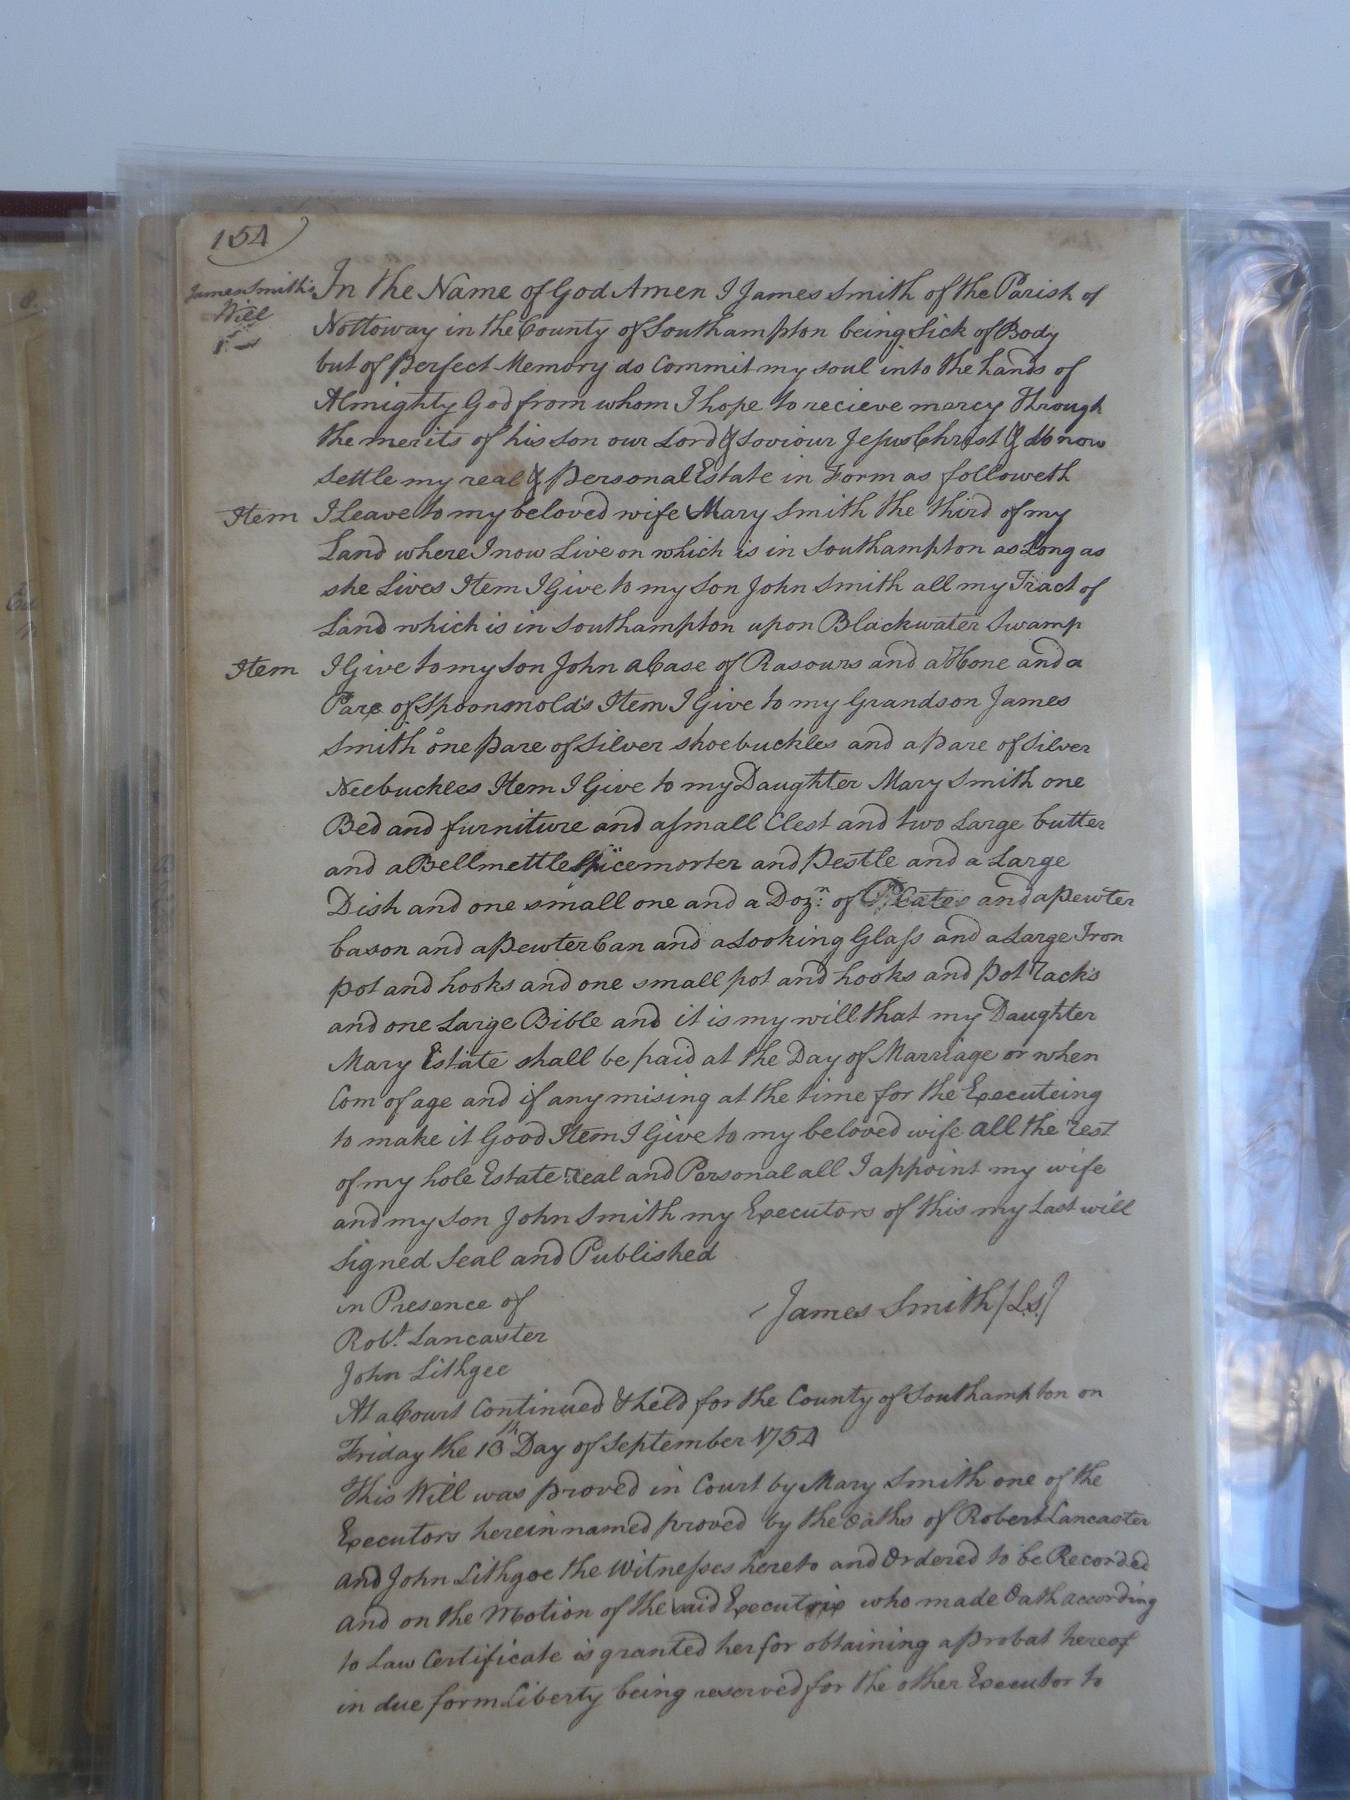 154
James Smith's
Will
In the Name of God Amen I James Smith of the Parish of
Nottoway in the County of Southampton being Sick of Body
but of Perfect Memory do Commit my soul into the hands of
Almighty God from whom I hope to recieve mercy through
the merits of his son our Lord & Soviour Jesus Christ & do now
settle my real & Personal Estate in Form as followeth
Item I Leave to my beloved wife Mary Smith the third of my
Land where I now Live on which is in Southampton as Long as
she Lives Item I Give to my Son John Smith all my Tract of
Land which is in Southampton upon Blackwater Swamp
Item I Give to my Son John a Case of Rasours and a Hone and a
Pare of Spoonmolds Item I Give to my Grandson James
Smith one pare of Silver shoebuckles and a pare of Silver
Neebuckles Item I Give to my Daughter Mary Smith one
Bed and furniture and a small Clest and two Large butter
and a Bellmettle Spicemorter and Pestle and a Large
Dish and one small one and a Dozn. of Plates and a Pewter
bason and a Pewter Can and a Looking Glass and a Large Iron
pot and hooks and one small pot and hooks and pot racks
and one Large Bible and it is my will that my Daughter
Mary Estate shall be paid at the Day of Marriage or when
Com of age and if any mising at the time for the Executeing
to make it Good Item I Give to my beloved wife all the rest
of my hole Estate real and Personal all I appoint my wife
and my son John Smith my Executors of this my Last will
Signed Seal and Published
in Presence of
James Smith (L.S.)
Robt. Lancaster
John Lithgee
At a Court Continued & held for the County of Southampton on
Friday the 13th Day of September 1754
This Will was proved in Court by Mary Smith one of the
Executors herein named proved by the Oaths of Robert Lancaster
and John Lithgoe the Witnesses hereto and Ordered to be Recorded
and on the Motion of the said Executrix who made Oath according
to Law Certificate is granted her for obtaining a probat hereof
in due form Liberty being reserved for the other Executor to